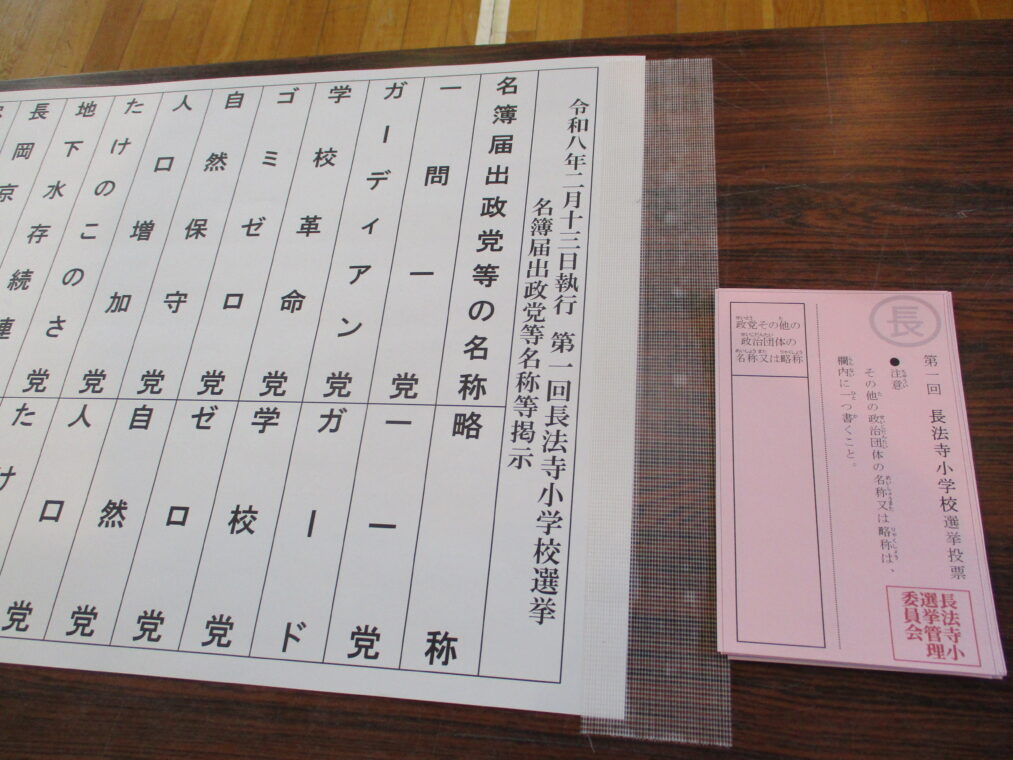 令和八年二月十三日執行 第一回長法寺小学校選挙
名簿届出政党等名称等掲示
名簿届出政党等の名称
略称
一問一党
一一党
ガーディアン党
ガード
学校革命党
学校党
ゴミゼロ党
ゼロ党
自然保守党
自然党
人口増加党
人口党
たけのこのさ
たけ
地下水存続連
長岡京
長
第一回 長法寺小学校選挙投票
●注意
その他の政治団体の名称又は略称は、
欄内に一つ書くこと。
政党その他の
政治団体の
名称又は略称
長法寺小
選挙管理
委員会